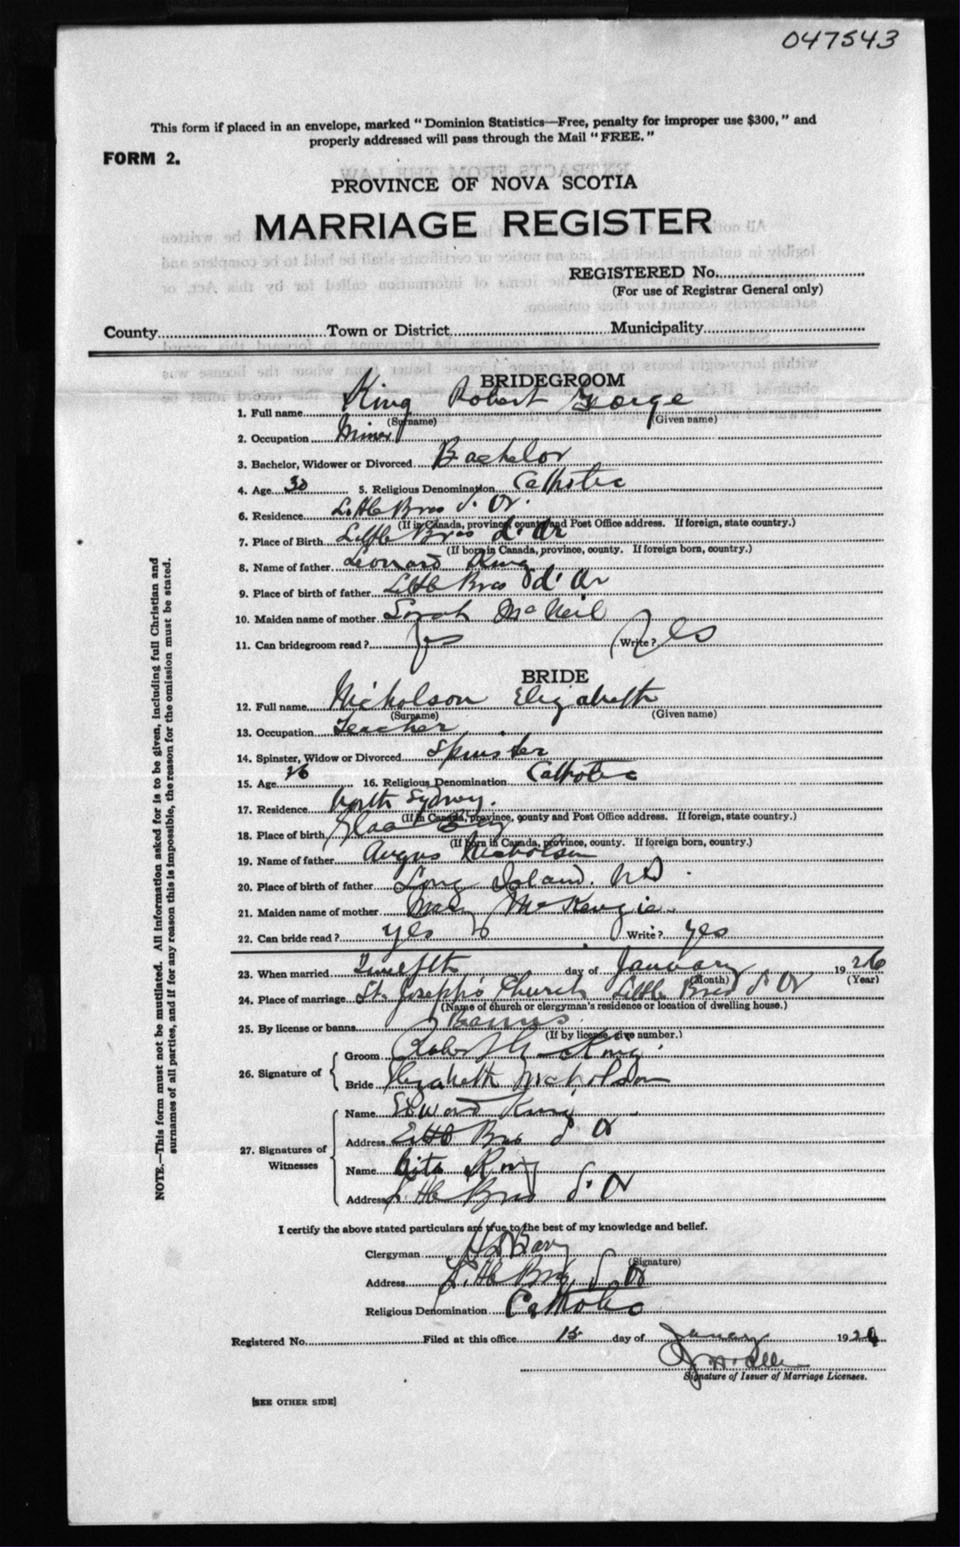 047543
This form if placed in an envelope, marked "Dominion Statistics—Free, penalty for improper use $300," and
properly addressed will pass through the Mail "FREE."
FORM 2.
PROVINCE OF NOVA SCOTIA
MARRIAGE REGISTER
REGISTERED No.
(For use of Registrar General only)
County Town or District Municipality
BRIDEGROOM
1. Full name King Robert George
(Surname) (Given name)
2. Occupation Miner
3. Bachelor, Widower or Divorced Bachelor
4. Age 30 5. Religious Denomination Catholic
6. Residence Little Bras d'Or
(If in Canada, province, county and Post Office address. If foreign, state country.)
7. Place of Birth Little Bras d'Or
(If born in Canada, province, county. If foreign born, country.)
8. Name of father Leonard King
9. Place of birth of father Little Bras d'Or
10. Maiden name of mother Sarah McNeil
11. Can bridegroom read? Yes Write? Yes
BRIDE
12. Full name Nicholson Elizabeth
(Surname) (Given name)
13. Occupation Teacher
14. Spinster, Widow or Divorced Spinster
15. Age 26 16. Religious Denomination Catholic
17. Residence North Sydney.
(If in Canada, province, county and Post Office address. If foreign, state country.)
18. Place of birth Glace Bay
(If born in Canada, province, county. If foreign born, country.)
19. Name of father Angus Nicholson
20. Place of birth of father Long Island.
21. Maiden name of mother Mary McKenzie
22. Can bride read? yes Write? yes
23. When married Twelfth day of January 1926
(Month) (Year)
24. Place of marriage St. Joseph's Church Little Bras d'Or
(Name of church or clergyman's residence or location of dwelling house.)
25. By license or banns Banns
(If by license, give number.)
26. Signature of
Groom Robert G King
Bride Elizabeth Nicholson
27. Signatures of Witnesses
Name Edward King
Address Little Bras d'Or
Name Rita
Address Little Bras d'Or
I certify the above stated particulars are true to the best of my knowledge and belief.
Clergyman
(Signature)
Address Little Bras d'Or
Religious Denomination Catholic
Registered No. Filed at this office 15 day of January 192
Signature of Issuer of Marriage Licenses.
[SEE OTHER SIDE]
NOTE.—This form must not be mutilated. All information asked for is to be given, including full Christian and
surnames of all parties, and if for any reason this is impossible, the reason for the omission must be stated.